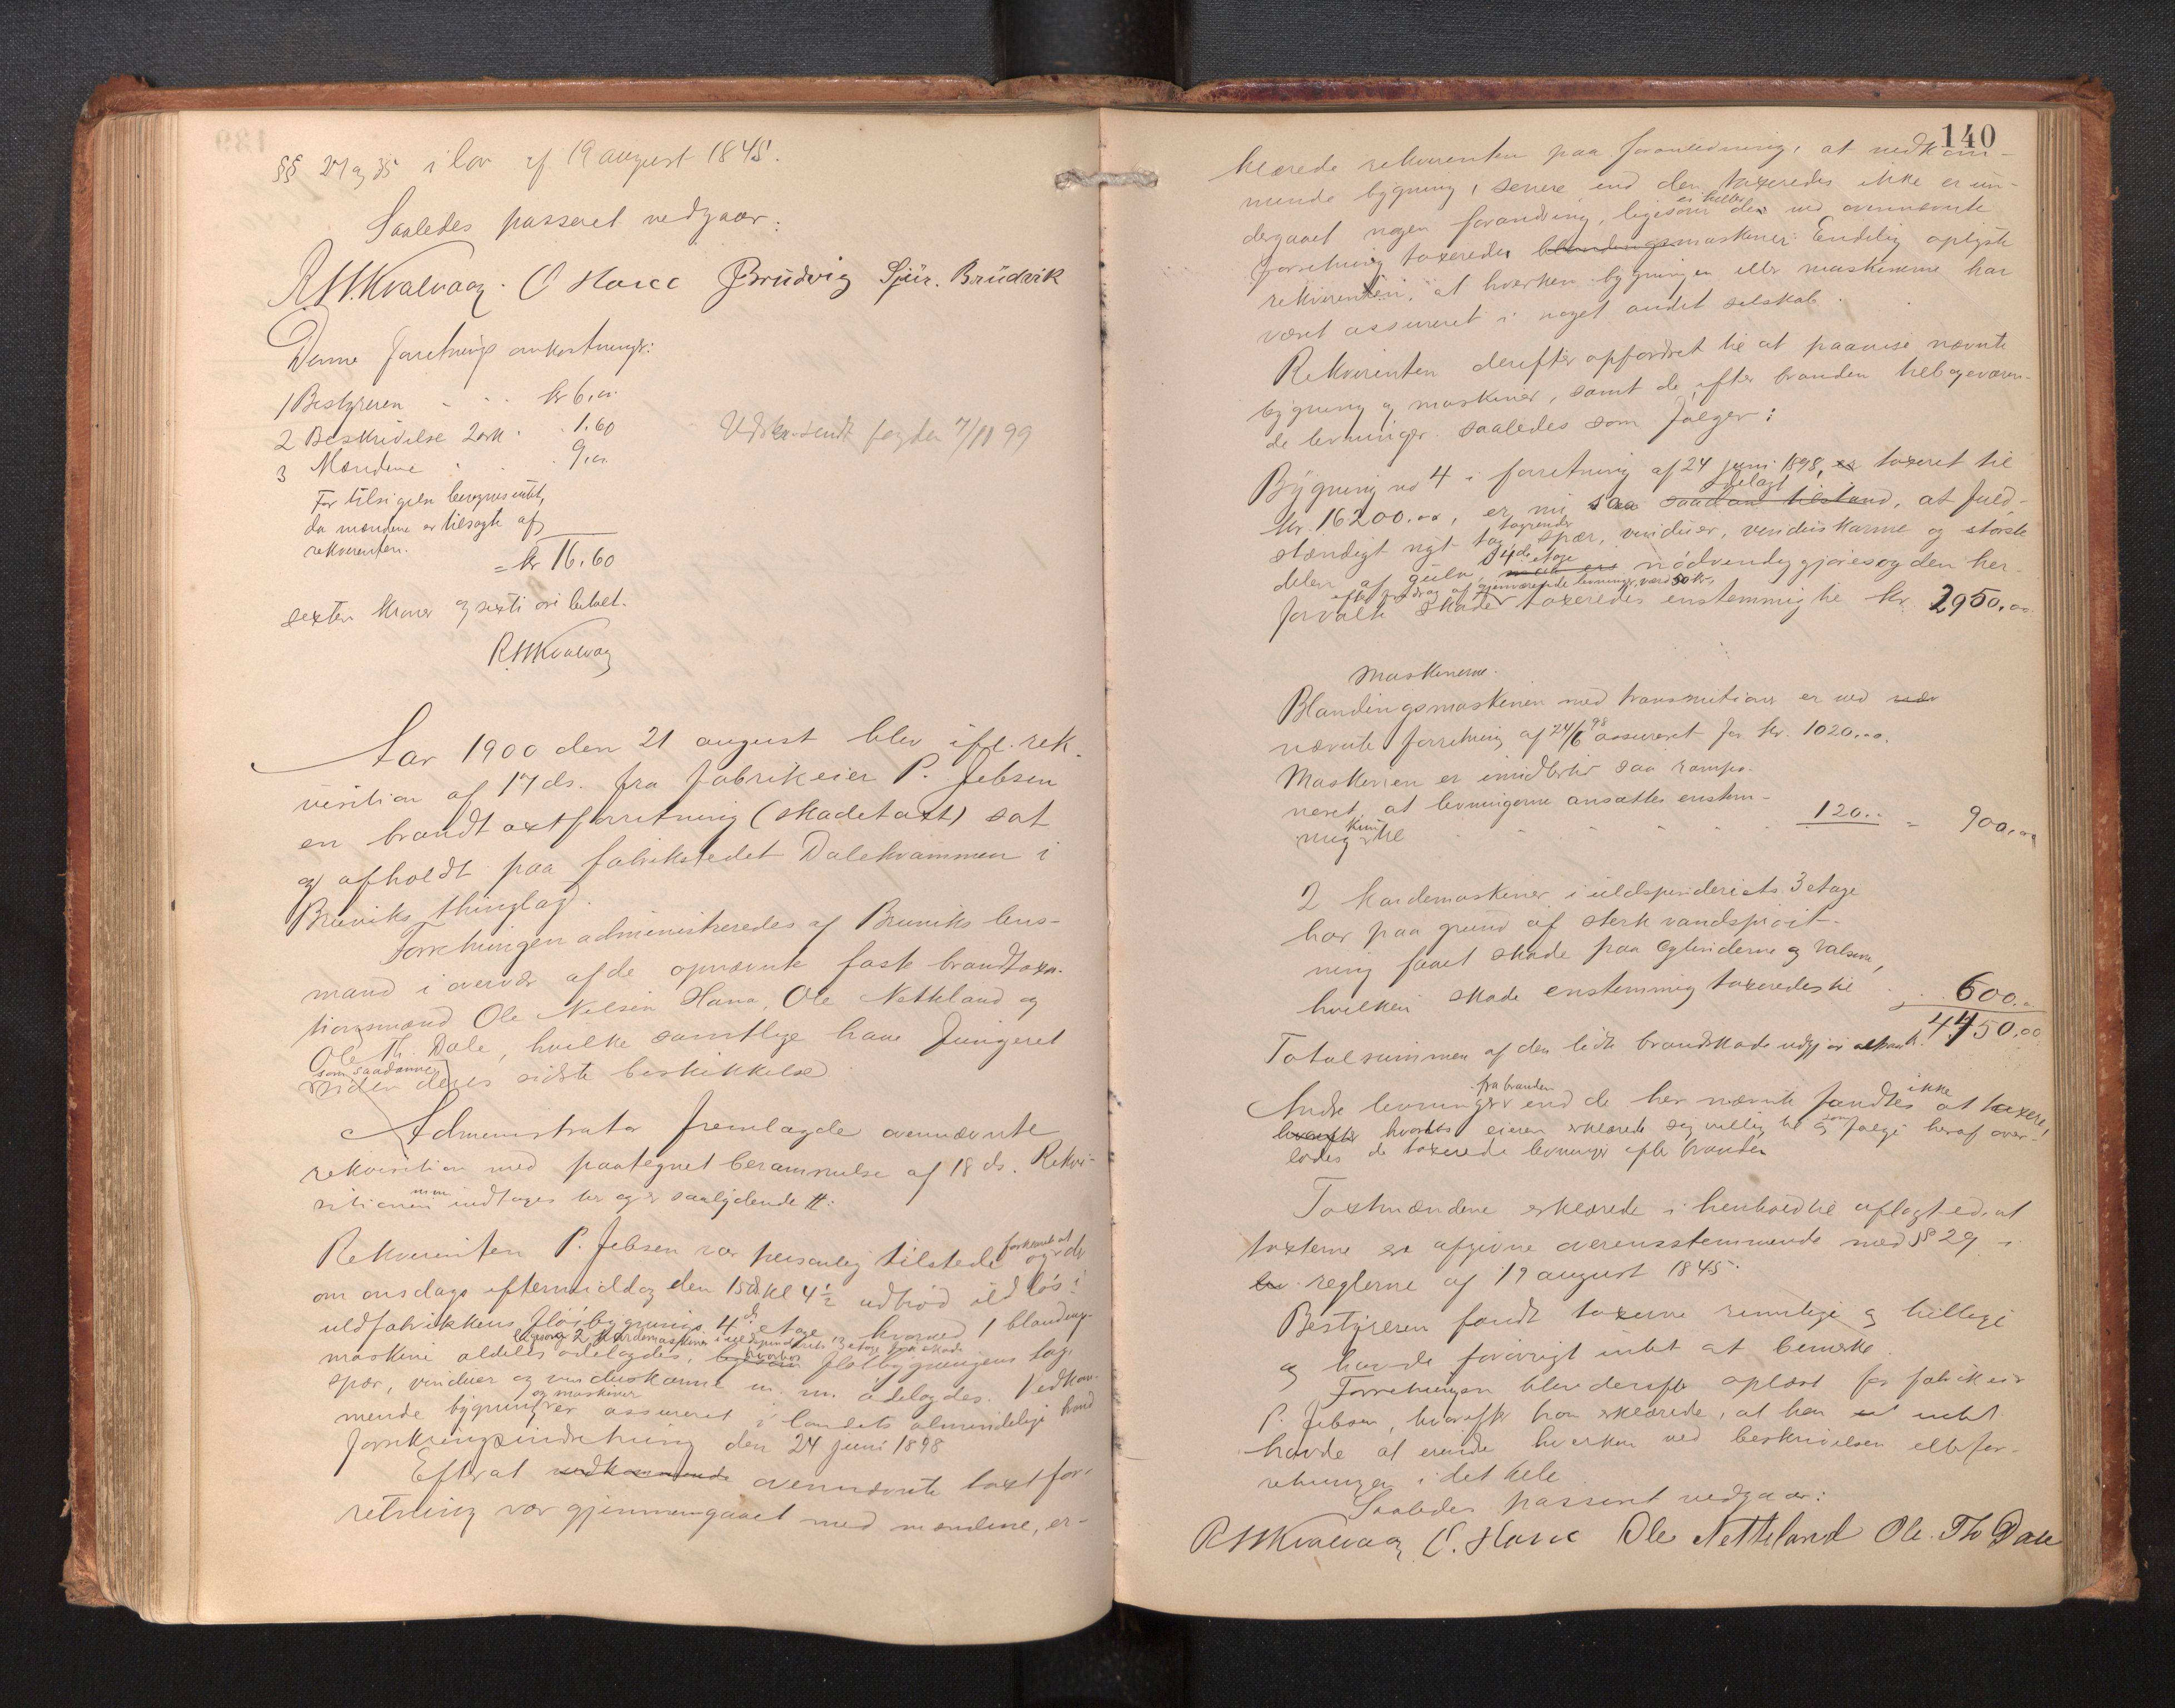 §§ 27 og 35 i lov af 19 august 1845.
Saaledes passeret vedgaar:
R.H.Kvalvaag. O Hane J Brüdvig Sjür. Brüdvik
Denne forretnings omkostninger:
1 Bestyreren - - - kr 6,00
2 Beskrivelse 2 ark - - 1.60
3 Mændene - - 9,00
For tilsigelsen beregnes intet,
da mændene er tilsagte af
rekvirenten.
= kr 16.60
sexten kroner og sexti øre betalt.
R.H.Kvalvaag
Udskr. sendt fogden 7/11 99
Aar 1900 den 21 august blev ifl. rek-
visition af 17 ds. fra fabrikeier P. Jebsen
en brandtaxtforretning (skadetaxt) sat
og afholdt paa fabrikstedet Dalekvammen i
Bruviks thinglag.
Forretningen administreredes af Bruviks lens-
mand i overvær af de opnævnte faste brandtaxa-
tionsmænd Ole Nilsen Hana, Ole Netteland og
Ole Th. Dale, hvilke samtlige have fungeret
som saadanne
siden deres sidste beskikkelse
Administrator fremlagde ovennævnte
rekvisition med paategnet berammelse af 18 ds. Rekvi-
sitionen indtages her og er saalydende #:
Rekvirenten P. Jebsen var personlig tilstede og
forklarede at der
om onsdags eftermiddag den 15de kl 4½ udbrød ild løs i
uldfabrikkens fløibygnings 4de etage, hvorved 1 blandings-
ligesom 2 kardemaskiner i uldspinderiets 3 etage fik skade
maskine aldeles ødelagdes, ligesom hvorhos fløibygningens tag,
spær, vinduer og vinduskarme m. m. ødelagdes. Vedkom-
og maskiner
mende bygning er assureret i landets almindelige brand
forsikringsindretning den 24 juni 1898
Efterat vedkommende ovennævnte taxtfor-
retning var gjennemgaaet med mændene, er-
140
klærede rekvirenten paa foranledning, at vedkom-
mende bygning, senere end den taxeredes ikke er un-
dergaaet nogen forandring, ligesom ei heller de ved ovennævnte
forretning taxerede blandingsmaskiner. Endelig oplyste
rekvirenten, at hverken bygningen eller maskinerne har
været assureret i noget andet selskab.
Rekvirenten derefter opfordret til at paavise nævnte
bygning og maskiner, samt de efter branden tilbageværen-
de levninger saaledes som følger:
Bygning no 4 i forretning af 24 juni 1898, er taxeret til
kr. 16200.00, er nu saa ødelagt saadan tilstand, at fuld-
stændigt nyt tag, tagrender spær, vinduer, vinduskarme og største
delen af gulv i 4de etage nødvendiggjøres og den her-
efter fradrag af gjenværende levninger, værd 50 kr,
forvoldte skade taxeredes enstemmig til kr. 2950,00
Maskinerne.
Blandingsmaskinen med transmition er ved
nævnte forretning af 24/6 98 assureret for kr. 1020,00.
Maskinen er imidlertid saa rampo-
neret, at levningerne ansættes enstem-
mig kun til - - - - 120.00 = 900,00
2 kardemaskiner i uldspinderiets 3 etage
har paa grund af sterk vandsprøit-
ning faaet skade paa cylinderne og valserne,
hvilken skade enstemmig taxeredes til - - 600.00
Totalsummen af den lidte brandskade udgjør altsaa kr. 4450,00
Andre levninger fra branden end de her nævnte fandtes ikke at taxere,
hvorefter hvorhos eieren erklærede sig villig til og som følge heraf over-
lodes de taxerede levninger efter branden
Taxtmændene erklærede i henhold til aflagt ed, at
taxterne er afgivne overensstemmende med § 29 i
lov reglerne af 19 august 1845.
Bestyreren fandt taxerne rimelige og billige
og havde forøvrigt intet at bemerke.
Forretningen blev derefter oplæst for fabrikeier
P. Jebsen, hvorefter han erklærede, at han intet
havde at erindre hverken ved beskrivelsen eller for-
retningen i det hele
Saaledes passeret vedgaar:
R.H.Kvalvaag O. Hane Ole Netteland Ole. Th Dale